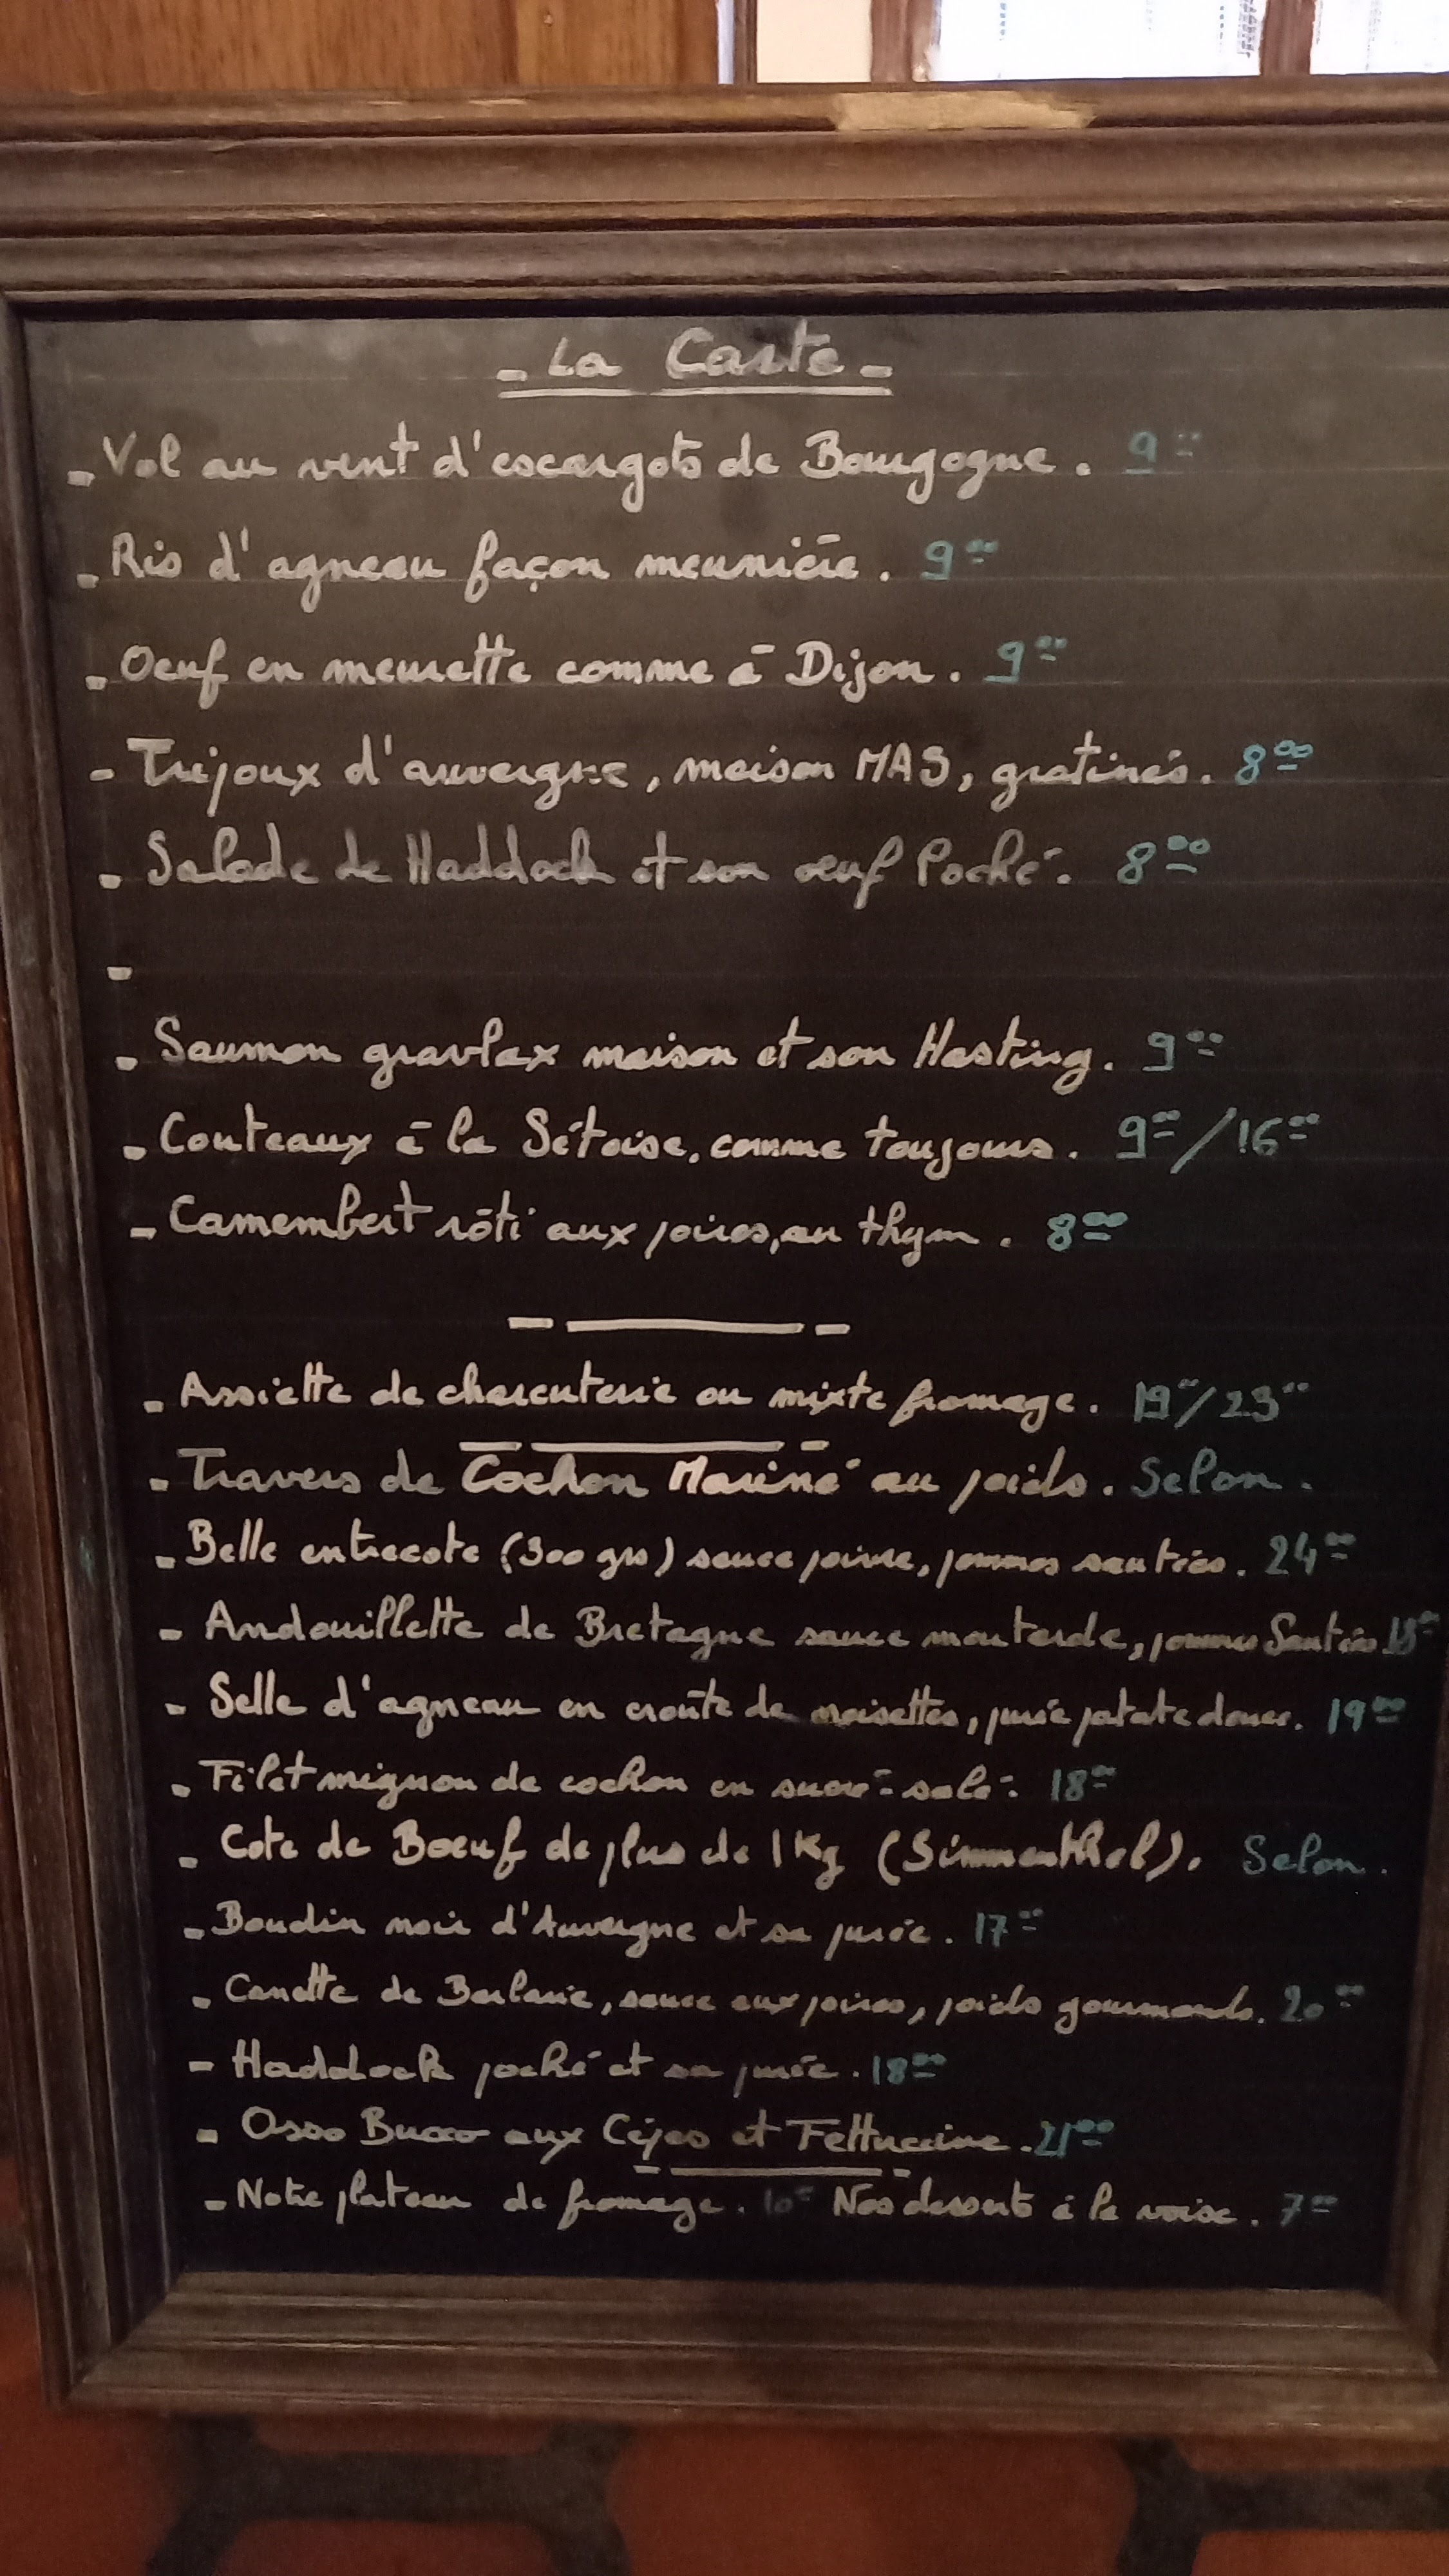 - La Carte -
- Vol au vent d'escargots de Bourgogne. 9 00
- Ris d'agneau façon meunière. 9 00
- Oeuf en meurette comme à Dijon. 9 00
- Trijoux d'auvergne, maison MAS, gratinés. 8 00
- Salade de Haddock et son oeuf Poché. 8 00
-
- Saumon gravlax maison et son Hasting. 9 00
- Couteaux à la Sétoise, comme toujours. 9 00 / 16 00
- Camembert rôti aux poires, au thym. 8 00
- Assiette de charcuterie ou mixte fromage. 19 00 / 23 00
- Travers de Cochon Mariné au poids. Selon.
- Belle entrecote (300 grs) sauce poivre, pommes sautées. 24 00
- Andouillette de Bretagne sauce moutarde, pommes Sautées 18 00
- Selle d'agneau en croûte de noisettes, purée patate douce. 19 00
- Filet mignon de cochon en sucré-salé. 18 00
- Cote de Boeuf de plus de 1 Kg (Simmenthal). Selon.
- Boudin noir d'Auvergne et sa purée. 17 00
- Canette de Barbarie, sauce aux poires, poids gourmands. 20 00
- Haddock poché et sa purée. 18 00
- Osso Bucco aux Cèpes et Fettuccine. 21 00
- Notre plateau de fromage. 10 00 Nos desserts à la voix. 7 00